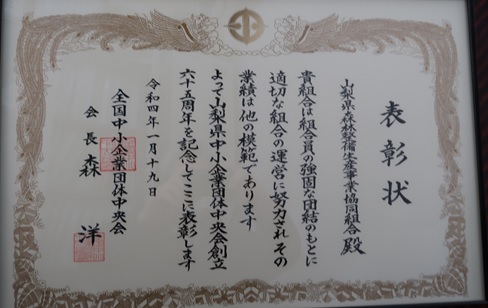 表彰状
山梨県森林整備生産事業協同組合 殿
貴組合は組合員の強固な団結のもとに
適切な組合の運営に努力されその
業績は他の模範であります
よって山梨県中小企業団体中央会創立
六十五周年を記念してここに表彰します
令和四年一月十九日
全国中小企業団体中央会
会長 森 洋